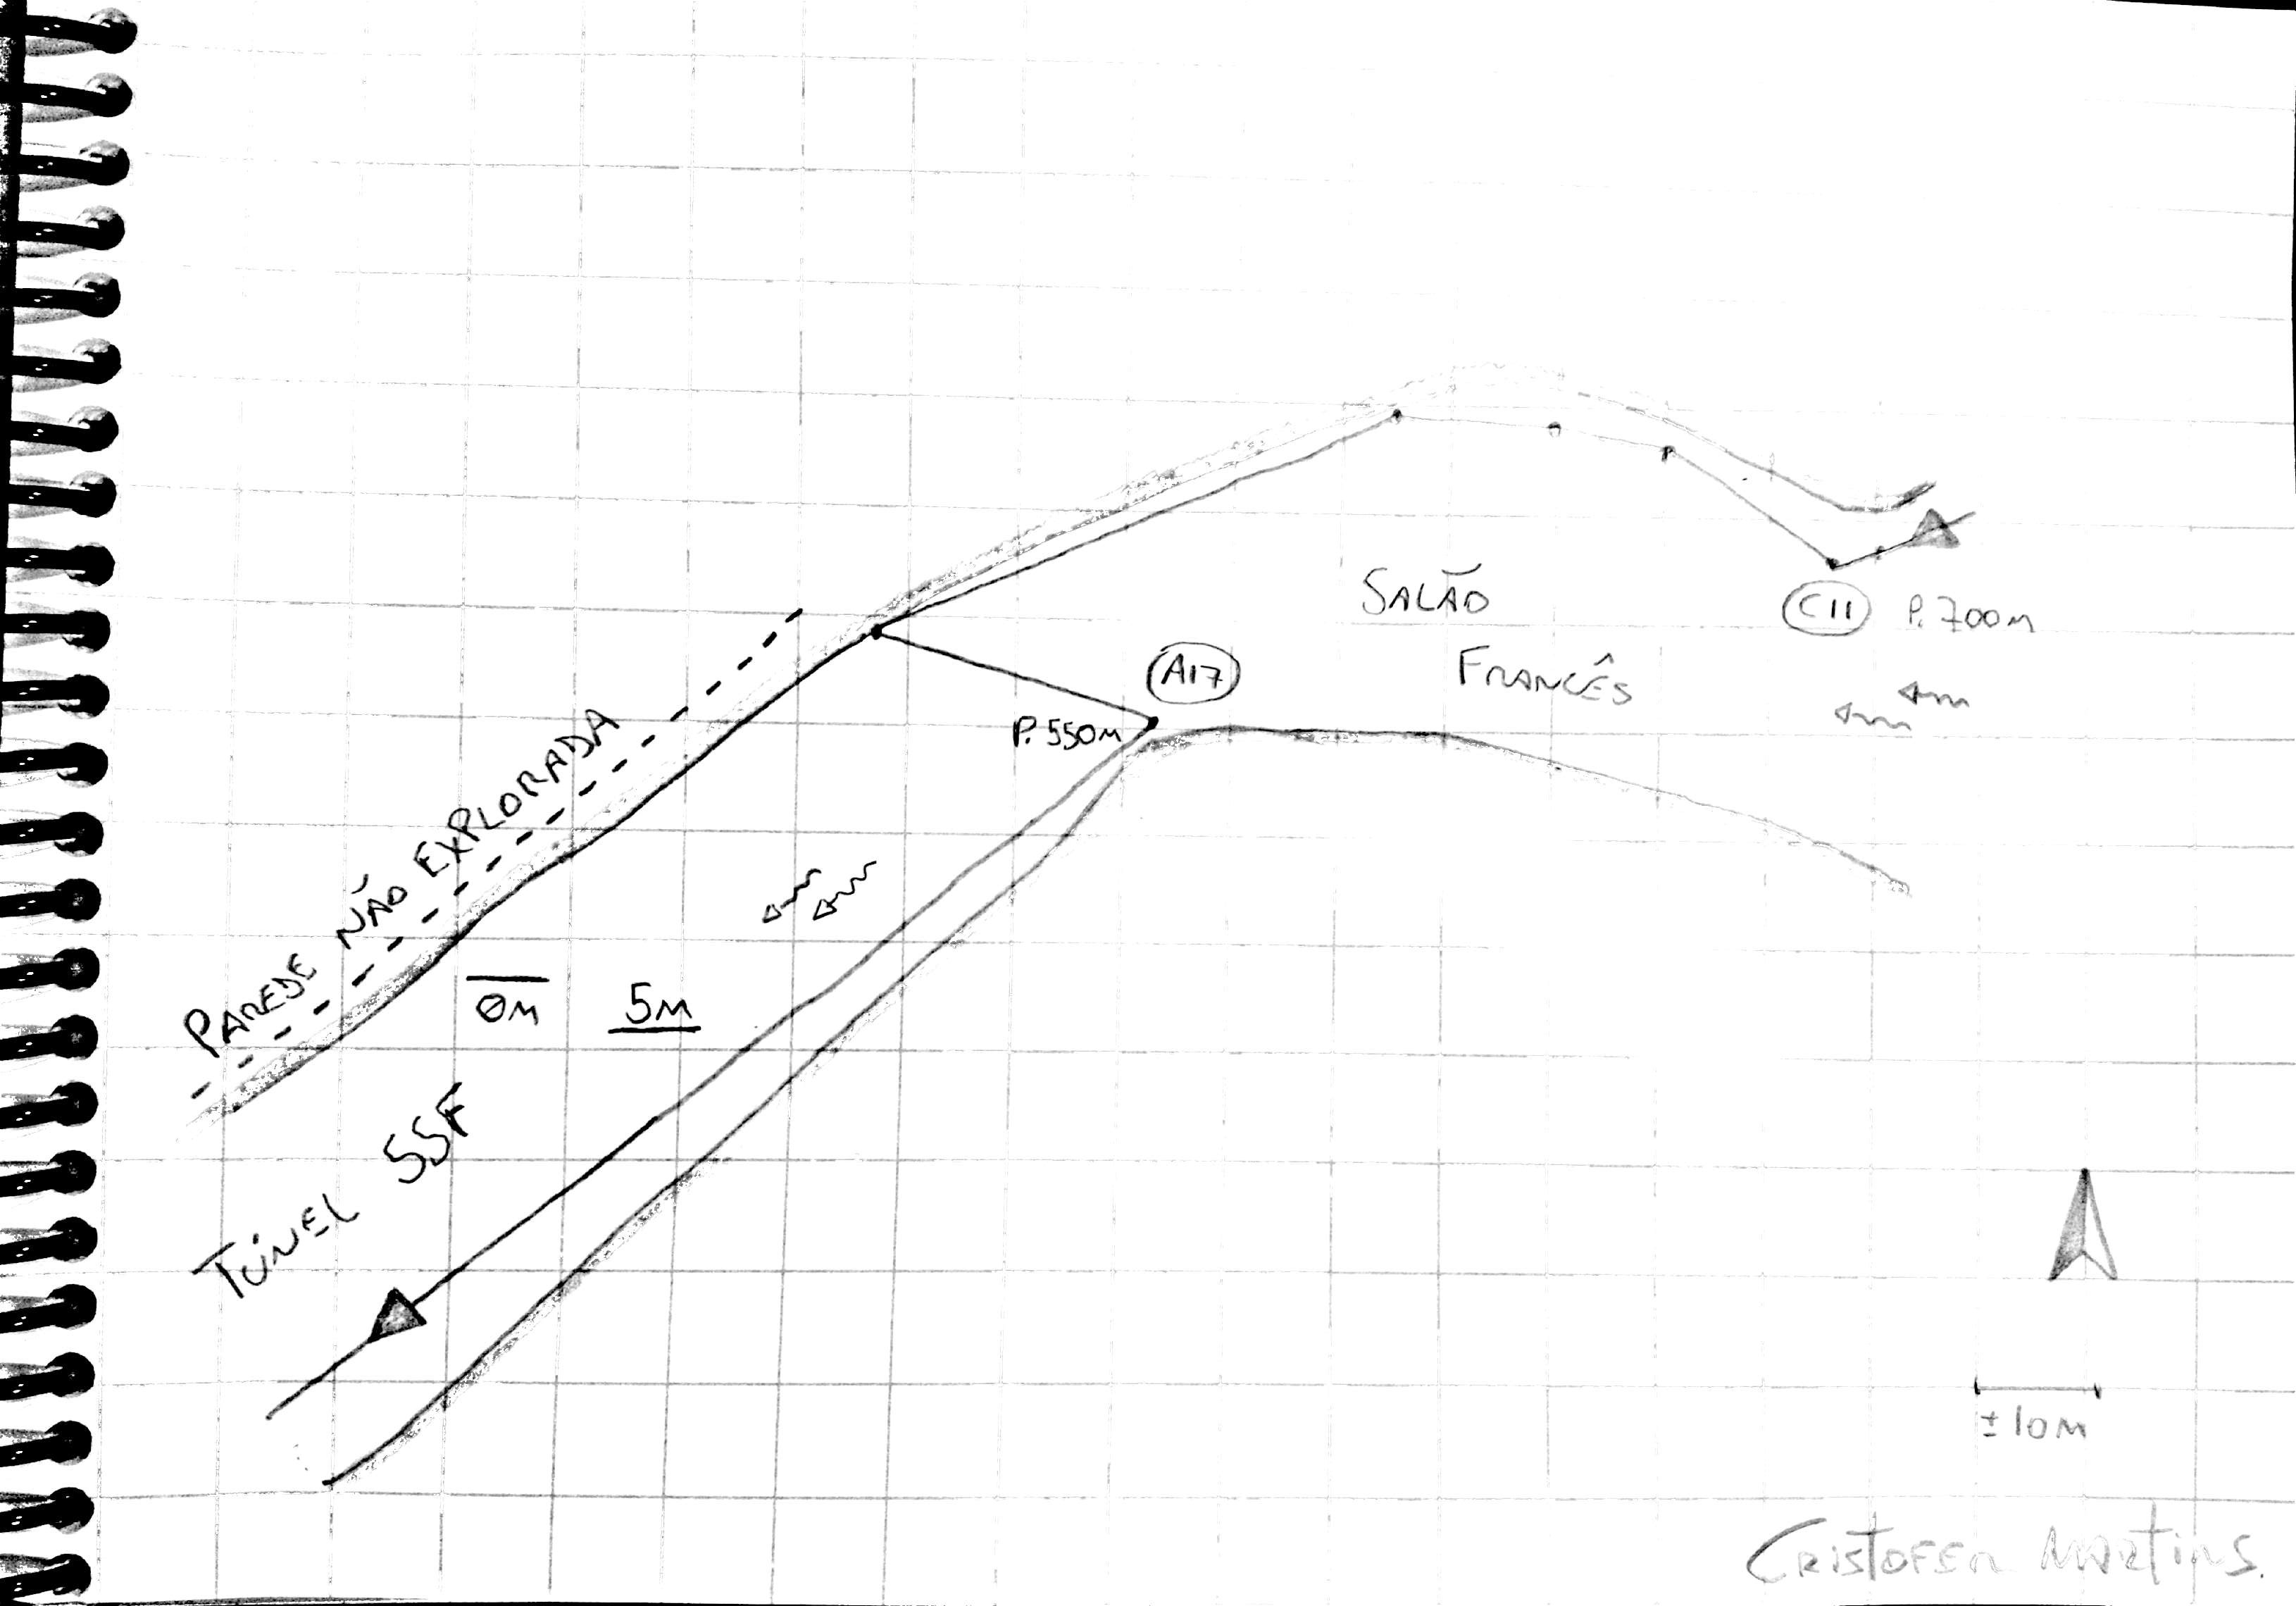 SALÃO
FRANCÊS
C11 P. 700M
A17
P. 550M
PAREDE NÃO EXPLORADA
0M 5M
TÚNEL SSF
± 10M
CRISTOFER MARTINS.